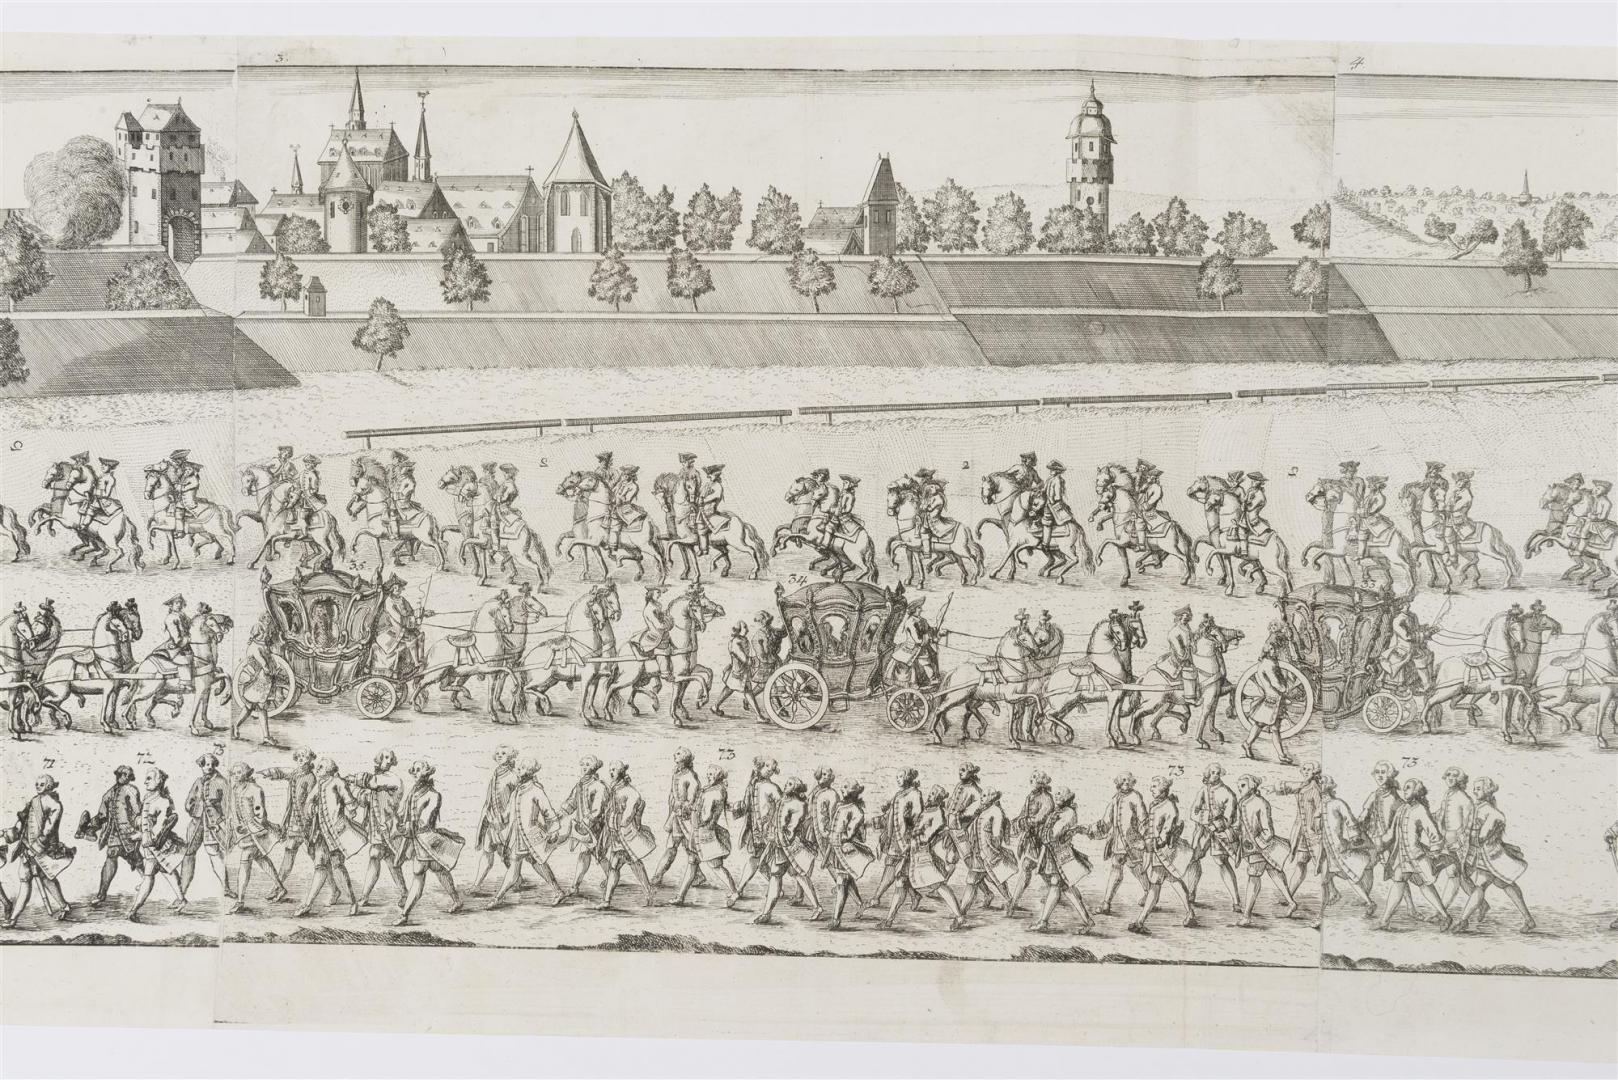 3.
4.
2
2
2
2
35
34
71
72
73
73
73
73